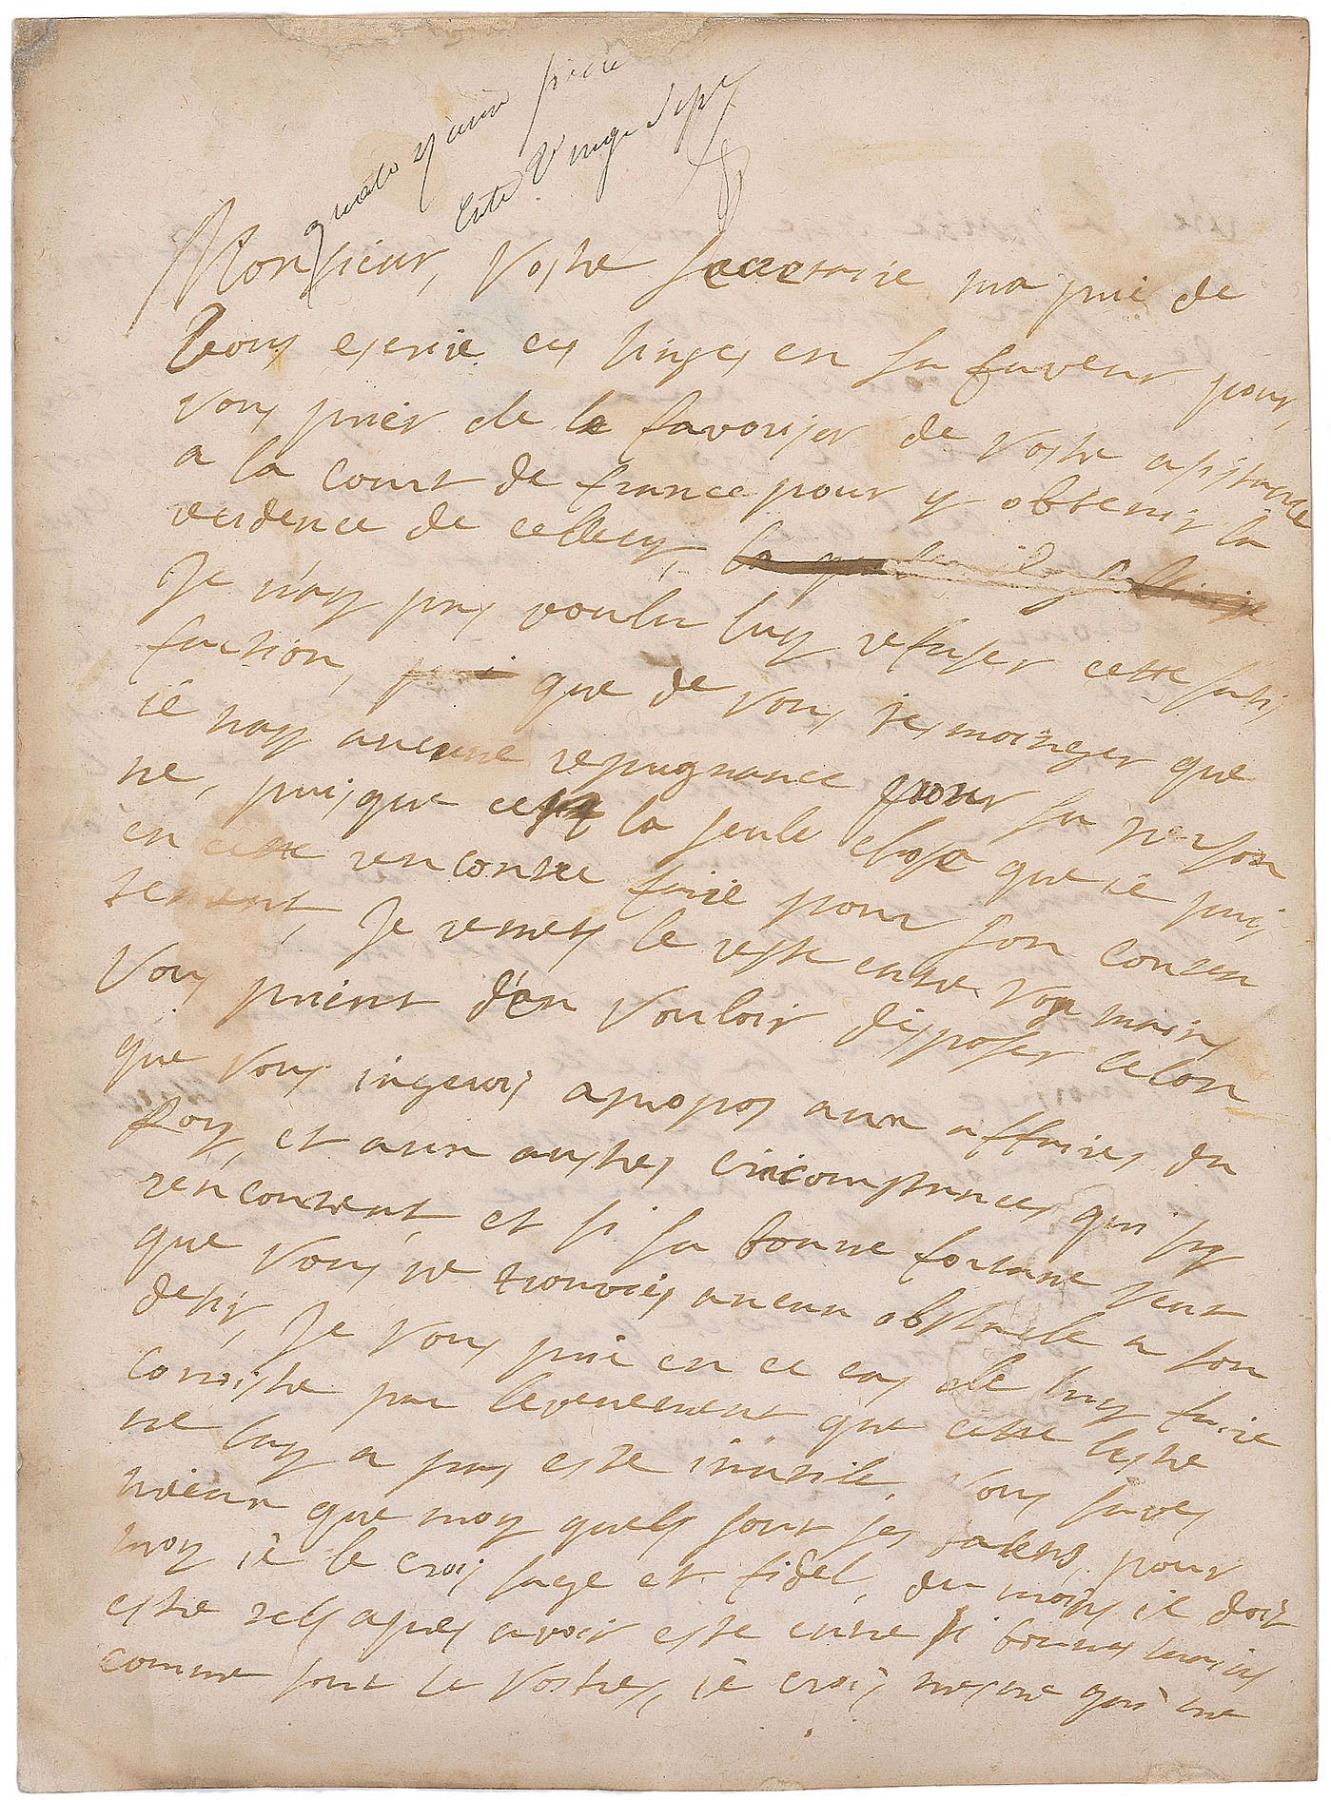 quatre vingt
Cote Vingt Sept
Monsieur, Vostre secretaire ma prié de
Vous escrire ces lignes en sa faveur pour
vous prier de le favoriser de vostre assistance
a la court de france pour y obtenir la
residence de cellecy,
Je n'ay pas voulu luy refuser cette satis
faction, que de vous tesmoigner que
ie nay aucune repugnance pour sa person
ne, puisque cest la seule chose que ie puis
en cette rencontre faire pour son conten
tement, Je remets le reste entre vos mains
Vous prient d'en vouloir disposer celon
que vous iugerois apropos aux affaires du
Roy, et aux autres circomstances qui sy
rencontrent, et si sa bonne fortune veut
que vous ne trouvies aucun obstacle a son
desir, Je vous prie en ce cas de luy faire
conoistre par levenement que cette lestre
ne luy a pas esté inutile, Vous saves
mieux que moy quels sont ses talens, pour
moy ie le crois sage et fidel, du moins il doit
estre tels apres avoir esté entre si bonnes mains
comme sont le vostres, ie crois mesme qu'i ne